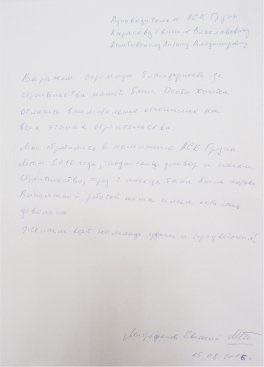 Руководителям АСК Групп
Карасову Евгению Вячеславовичу
Антону Владимировичу
Выражаю огромную благодарность за
строительство нашей бани. Особо хочется
отметить внимательное отношение на
всех этапах строительства.
Мы обратились в компанию АСК Групп
2016 году, подписали договор и начали
строительство, через 2 месяца баня была готова
работой жена и моя семья
довольна
Желаем всей команде удачи и процветания!
Митрофанов Евгений
15.08.2016.